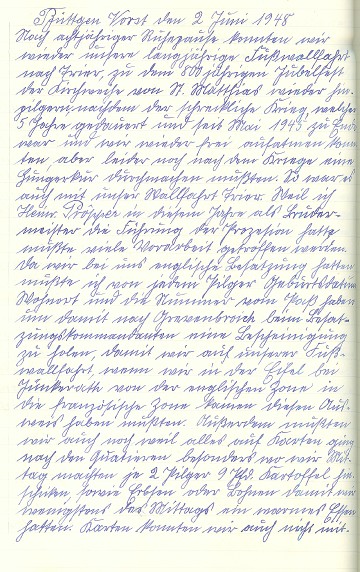 Büttgen Vorst den 2 Juni 1948
Nach achtjähriger Ruhepause konnten wir
wieder unsere langjährige Fußwallfahrt
nach Trier, zu dem 800 jährigen Jubelfest
der Kirchweihe von St. Matthias wieder hin-
pilgern, nachdem der schreckliche Krieg welcher
5 Jahre gedauert und seit Mai 1945 zu Ende
war und wir wieder frei aufatmen konn-
ten aber leider noch nach dem Kriege eine
Hungerkur durchmachen mußten. So war es
auch mit unser Wallfahrt Trier. Weil ich
Heinr. in diesem Jahre als Bruder-
meister die Führung der Prozesion hatte
mußte viele Vorarbeit getroffen werden.
Da wir bei uns englische Besatzung hatten
mußte ich von jedem Pilger Geburtsdatum
Wohnort und die Nummer vom Paß haben
um damit nach Grevenbroich beim Besat-
zungskommandanten eine Bescheinigung
zu holen, damit wir auf unserer Fuß-
wallfahrt, wenn wir in der Eifel bei
Jünkerath von der englischen Zone in
die französische Zone kamen diesen Aus-
weis haben mußten. Außerdem mußten
wir auch noch weil alles auf Karten ging
nach den Quatieren besonders wo wir Mit-
tag machten je 2 Pilger 9 Pfd. Kartoffel hin-
schicken, sowie Erbsen oder Bohnen damit wir
wenigstens des Mittags ein warmes Essen
hatten. Karten konnten wir auch nicht mit-